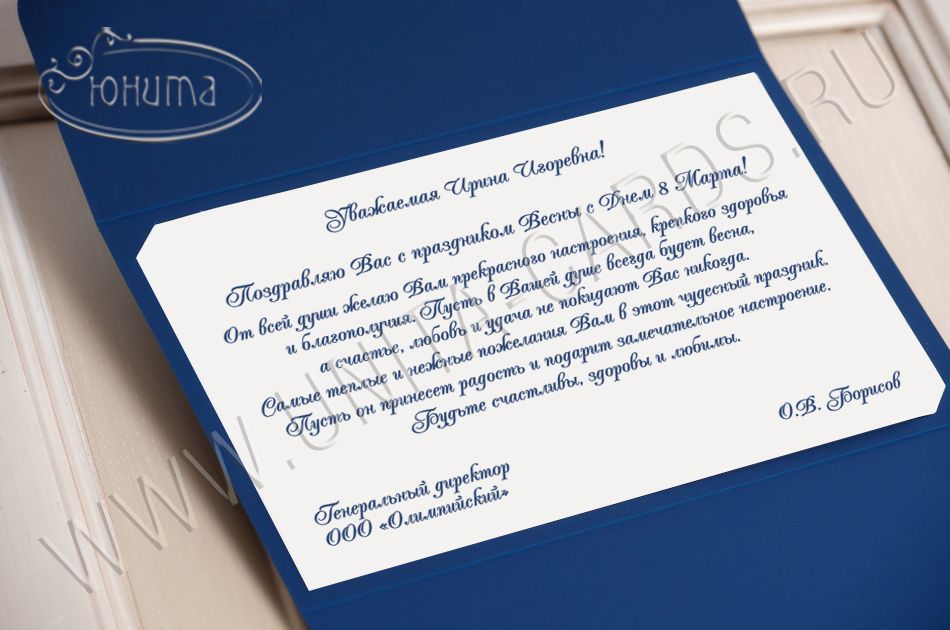 Юнита
Уважаемая Ирина Игоревна!
Поздравляю Вас с праздником Весны с Днем 8 Марта!
От всей души желаю Вам прекрасного настроения, крепкого здоровья
и благополучия. Пусть в Вашей душе всегда будет весна,
а счастье, любовь и удача не покидают Вас никогда.
Самые теплые и нежные пожелания Вам в этот чудесный праздник.
Пусть он принесет радость и подарит замечательное настроение.
Будьте счастливы, здоровы и любимы.
О.В. Борисов
Генеральный директор
ООО «Олимпийский»
WWW.UNITA-CARDS.RU